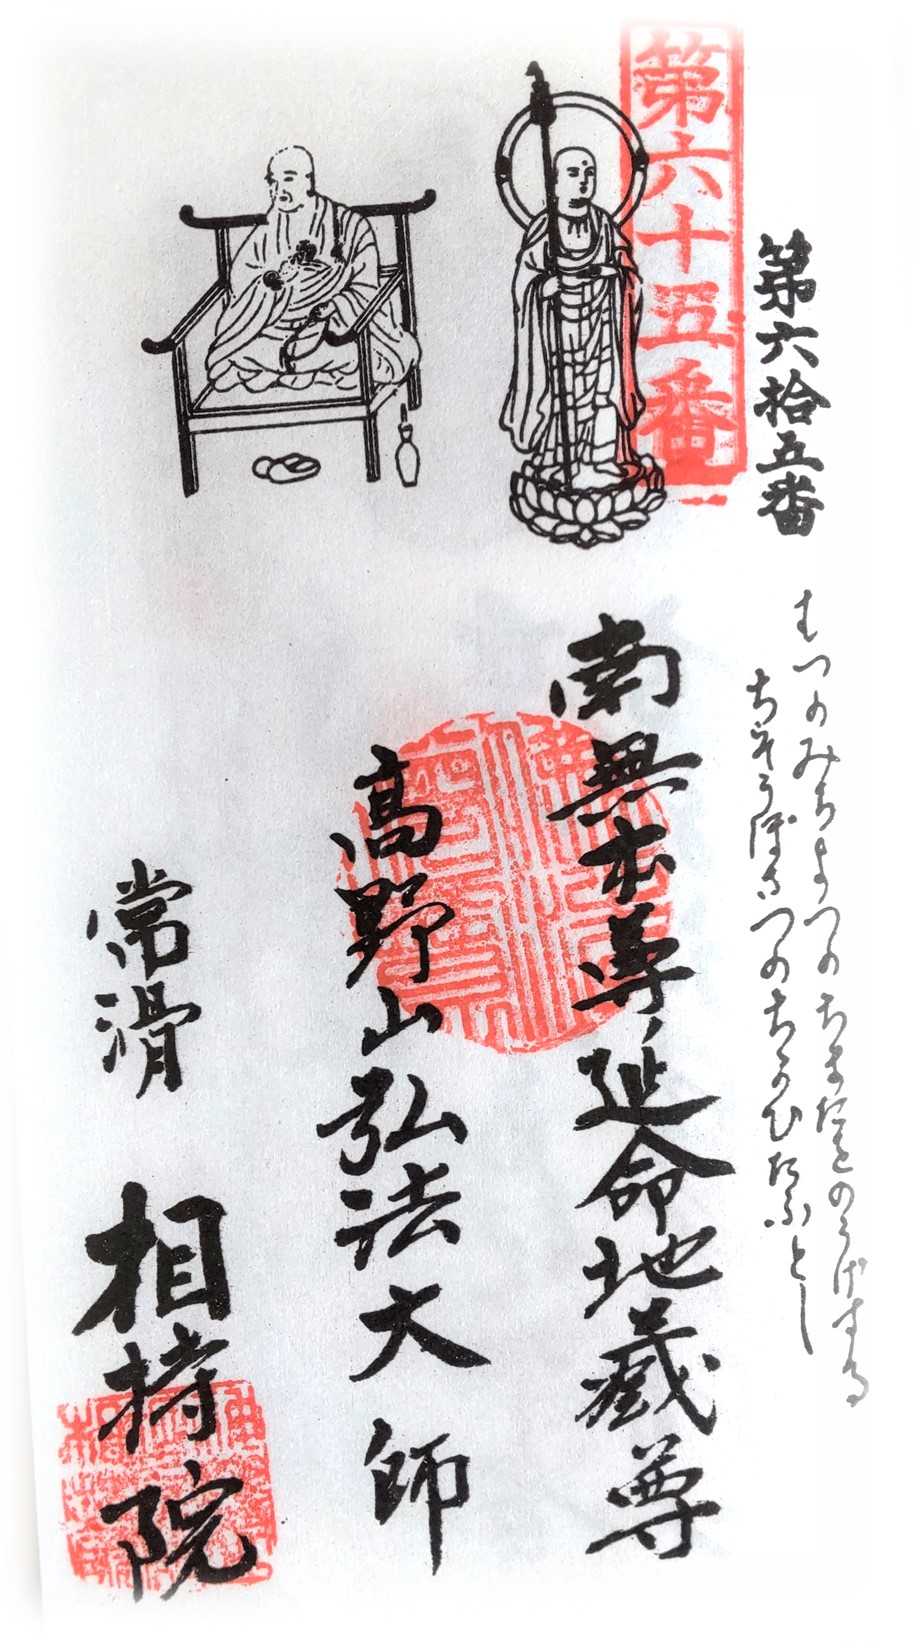 第六十五番
第六拾五番
むつのみちよつのちまたをのうげする
ちぞうぼさつのちかひたふとし
南無本尊延命地蔵尊
高野山弘法大師
常滑 相持院